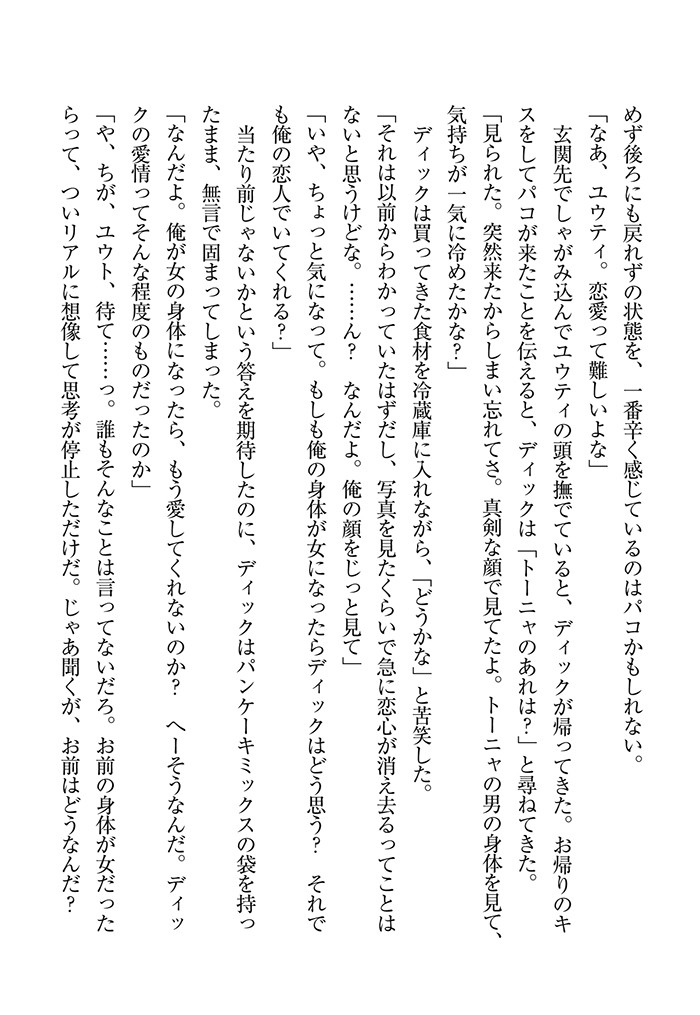 めず後ろにも戻れずの状態を、一番辛く感じているのはパコかもしれない。
「なあ、ユウティ。恋愛って難しいよな」
　玄関先でしゃがみ込んでユウティの頭を撫でていると、ディックが帰ってきた。お帰りのキ
スをしてパコが来たことを伝えると、ディックは「トーニャのあれは？」と尋ねてきた。
「見られた。突然来たからしまい忘れてさ。真剣な顔で見てたよ。トーニャの男の身体を見て、
気持ちが一気に冷めたかな？」
　ディックは買ってきた食材を冷蔵庫に入れながら、「どうかな」と苦笑した。
「それは以前からわかっていたはずだし、写真を見たくらいで急に恋心が消え去るってことは
ないと思うけどな。……ん？　なんだよ。俺の顔をじっと見て」
「いや、ちょっと気になって。もしも俺の身体が女になったらディックはどう思う？　それで
も俺の恋人でいてくれる？」
　当たり前じゃないかという答えを期待したのに、ディックはパンケーキミックスの袋を持っ
たまま、無言で固まってしまった。
「なんだよ。俺が女の身体になったら、もう愛してくれないのか？　へーそうなんだ。ディッ
クの愛情ってそんな程度のものだったのか」
「や、ちが、ユウト、待て……っ。誰もそんなことは言ってないだろ。お前の身体が女だった
らって、ついリアルに想像して思考が停止しただけだ。じゃあ聞くが、お前はどうなんだ？